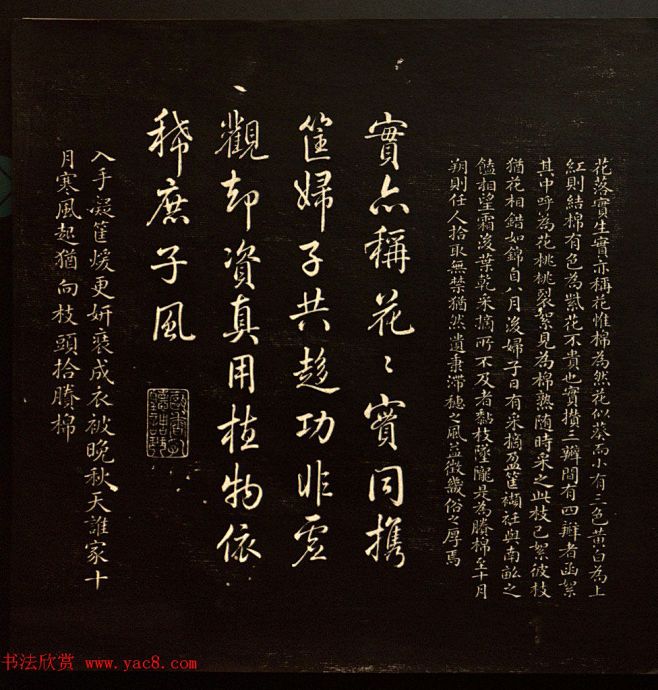 花落實生實亦稱花惟棉為然花似葵而小有三色黃白為上
紅則結棉有色為紫花不貴也實攢三瓣間有四瓣者函絮
其中呼為花桃桃裂絮見為棉熟隨時采之此枝已絮彼枝
猶花相錯如錦自八月後婦子日有采摘盈筐襭袵與南畝之
饁相望霜後葉乾采摘所不及者黏枝墜隴是為賸棉至十月
朔則任人拾取無禁猶然遺秉滯穗之風益徵歲俗之厚焉
實亦稱花〻實同攜
筐婦子共趍功非虛
觀却資真用植物依
稀庶子風
入手凝筐煖更妍裹成衣被晚秋天誰家十
月寒風起猶向枝頭拾賸棉
书法欣赏 www.yac8.com